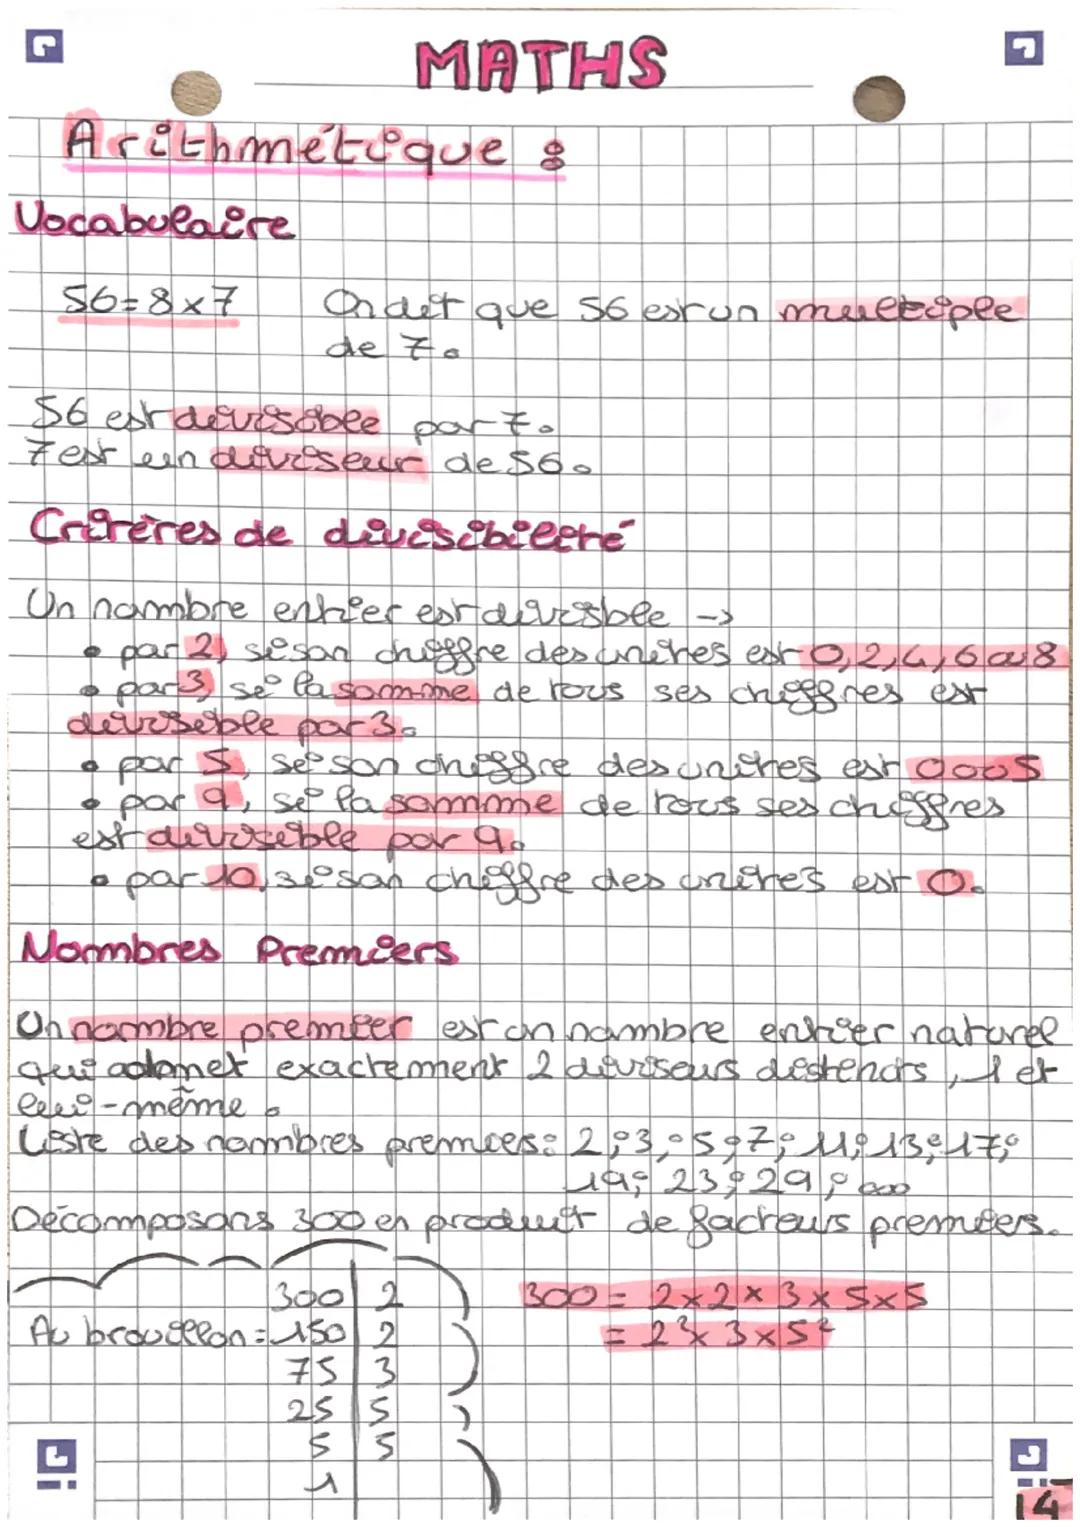 MATHS
Arithmétique :
Vocabulaire
56=8×7 On dit que 56 est un multiple
de 7.
56 est divisible par 7.
7 est un diviseur de 56.
Critères de divisibilité
Un nombre entier est divisible ->
• par 2, si son chiffre des unités est 0,2,4,6 ou 8
• par 3, si la somme de tous ses chiffres est
divisible par 3.
• par 5, si son chiffre des unités est 0 ou 5
• par 9, si la somme de tous ses chiffres
est divisible par 9.
• par 10, si son chiffre des unités est 0.
Nombres Premiers
Un nombre premier est un nombre entier naturel
qui admet exactement 2 diviseurs distincts, 1 et
lui-même.
Liste des nombres premiers: 2;3;5;7;11;13;17;
19; 23; 29; ...
Décomposons 300 en produit de facteurs premiers.
300 | 2 300 = 2×2×3×5×5
Au brouillon: 150 | 2 = 2²×3×5²
75 | 3
25 | 5
5 | 5
1
14